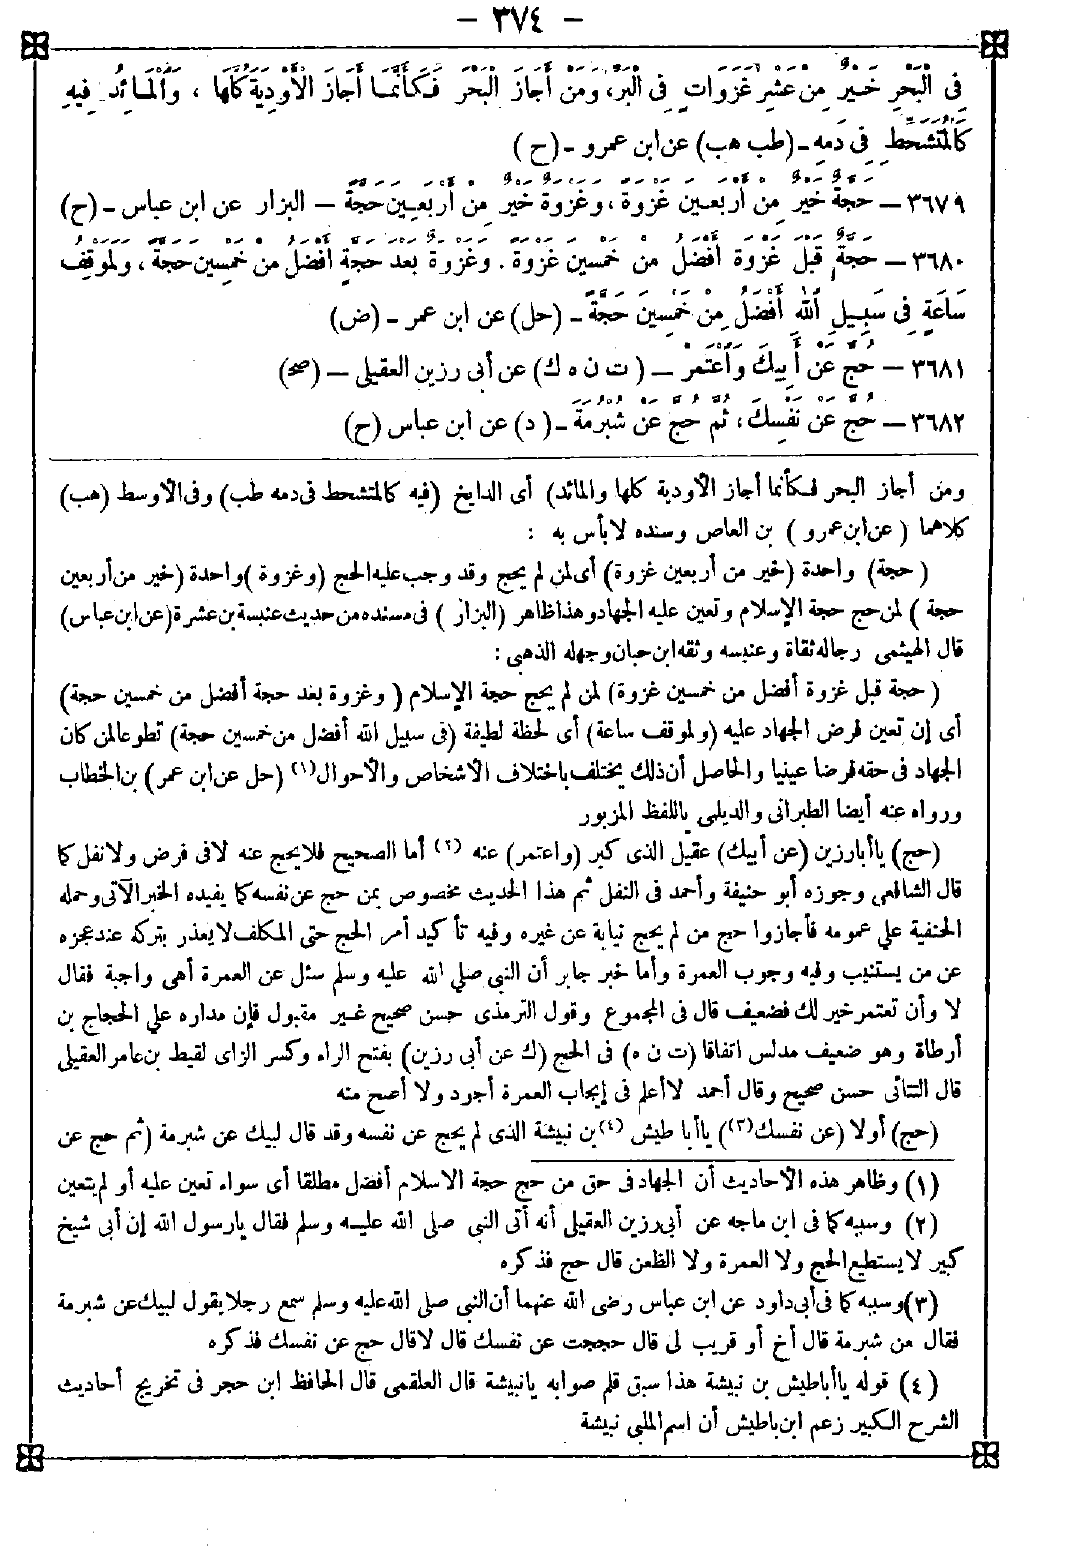 — ٣٧٤ —
فِى الْبَحْرِ خَيْرٌ مِنْ عَشْرِ غَزَوَاتٍ فِى الْبَرِّ، وَمَنْ أَجَازَ الْبَحْرَ فَكَأَنَّمَا أَجَازَ الْأَوْدِيَةَ كُلَّهَا ، وَالْمَائِدُ فِيهِ
كَالْمُتَشَحِّطِ فِى دَمِهِ - (طب هب) عن ابن عمرو - (ح)
٣٦٧٩ — حَجَّةٌ خَيْرٌ مِنْ أَرْبَعِينَ غَزْوَةً ، وَغَزْوَةٌ خَيْرٌ مِنْ أَرْبَعِينَ حَجَّةً — البزار عن ابن عباس - (ح)
٣٦٨٠ — حَجَّةٌ قَبْلَ غَزْوَةٍ أَفْضَلُ مِنْ خَمْسِينَ غَزْوَةً . وَغَزْوَةٌ بَعْدَ حَجَّةٍ أَفْضَلُ مِنْ خَمْسِينَ حَجَّةً ، وَلَمَوْقِفُ
سَاعَةٍ فِى سَبِيلِ اللهِ أَفْضَلُ مِنْ خَمْسِينَ حَجَّةً - (حل) عن ابن عمر - (ض)
٣٦٨١ — حُجَّ عَنْ أَبِيكَ وَاعْتَمِرْ — ( ت ن ه ك) عن أبى رزين العقيلى — (صح)
٣٦٨٢ — حُجَّ عَنْ نَفْسِكَ ، ثُمَّ حُجَّ عَنْ شُبْرُمَةَ - ( د) عن ابن عباس (ح)
ومن أجاز البحر فكأنما أجاز الأودية كلها والمائد) أى الدايخ (فيه كالمتشحط فى دمه طب) وفى الأوسط (هب)
كلاهما ( عن ابن عمرو ) بن العاص وسنده لا بأس به :
( حجة) واحدة (خير من أربعين غزوة) أى لمن لم يحج وقد وجب عليه الحج (وغزوة )واحدة (خير من أربعين
حجة ) لمن حج حجة الإسلام وتعين عليه الجهاد وهذا ظاهر (البزار ) فى مسنده من حديث عنبسة بن عشرة (عن ابن عباس)
قال الهيثمى رجاله ثقاة وعنبسه وثقه ابن حبان وجهله الذهبى :
( حجة قبل غزوة أفضل من خمسين غزوة) لمن لم يحج حجة الإسلام ( وغزوة بعد حجة أفضل من خمسين حجة)
أى إن تعين فرض الجهاد عليه (ولموقف ساعة) أى لحظة لطيفة (فى سبيل الله أفضل من خمسين حجة) تطوعا لمن كان
الجهاد فى حقه فرضا عينيا والحاصل أن ذلك يختلف باختلاف الأشخاص والأحوال(١) (حل عن ابن عمر) بن الخطاب
ورواه عنه أيضا الطبرانى والديلمى باللفظ المزبور
(حج) يا أبا رزين (عن أبيك) عقيل الذى كبر (واعتمر) عنه (٢) أما الصحيح فلا يحج عنه لا فى فرض ولا نفل كما
قال الشافعى وجوزه أبو حنيفة وأحمد فى النفل ثم هذا الحديث مخصوص بمن حج عن نفسه كما يفيده الخبر الآتى وحمله
الحنفية على عمومه فأجازوا حج من لم يحج نيابة عن غيره وفيه تأكيد أمر الحج حتى المكلف لا يعذر بتركه عند عجزه
عن من يستنيب وفيه وجوب العمرة وأما خبر جابر أن النبى صلى الله عليه وسلم سئل عن العمرة أهى واجبة فقال
لا وأن تعتمر خير لك فضعيف قال فى المجموع وقول الترمذى حسن صحيح غير مقبول فإن مداره على الحجاج بن
أرطاة وهو ضعيف مدلس اتفاقا (ت ن ه) فى الحج (ك عن أبى رزين) بفتح الراء وكسر الزاى لقيط بن عامر العقيلى
قال التتائى حسن صحيح وقال أحمد لا أعلم فى إيجاب العمرة أجود ولا أصح منه
(حج) أولا (عن نفسك(٣)) يا أبا طيش (٤)بن نبيشة الذى لم يحج عن نفسه وقد قال لبيك عن شبرمة (ثم حج عن
(١) وظاهر هذه الأحاديث أن الجهاد فى حق من حج حجة الاسلام أفضل مطلقا أى سواء تعين عليه أو لم يتعين
(٢) وسببه كما فى ابن ماجه عن أبى رزين العقيلى أنه أتى النبى صلى الله عليه وسلم فقال يا رسول الله إن أبى شيخ
كبير لا يستطيع الحج ولا العمرة ولا الظعن قال حج فذكره
(٣) وسببه كما فى أبى داود عن ابن عباس رضى الله عنهما أن النبى صلى الله عليه وسلم سمع رجلا يقول لبيك عن شبرمة
فقال من شبرمة قال أخ أو قريب لى قال حججت عن نفسك قال لا قال حج عن نفسك فذكره
(٤) قوله يا أبا طيش بن نبيشة هذا سبق قلم صوابه يا نبيشة قال العلقمى قال الحافظ ابن حجر فى تخريج أحاديث
الشرح الكبير زعم ابن باطيش أن اسم الملبى نبيشة